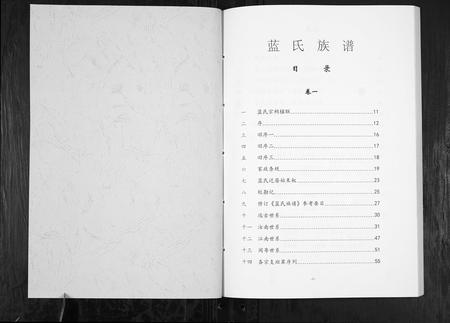 蓝氏族谱
目 录
卷一
一 蓝氏宗祠楹联 11
二 序 12
三 旧序一 16
四 旧序二 17
五 旧序三 18
六 家政条规 19
七 蓝氏迁居始末 23
八 25
九 修订《蓝氏族谱》参考要目 27
十 远古世系 30
十一 汝南世系 31
十二 江南世系 47
十三 闽粤世系 51
十四 各宗支班辈序列 55